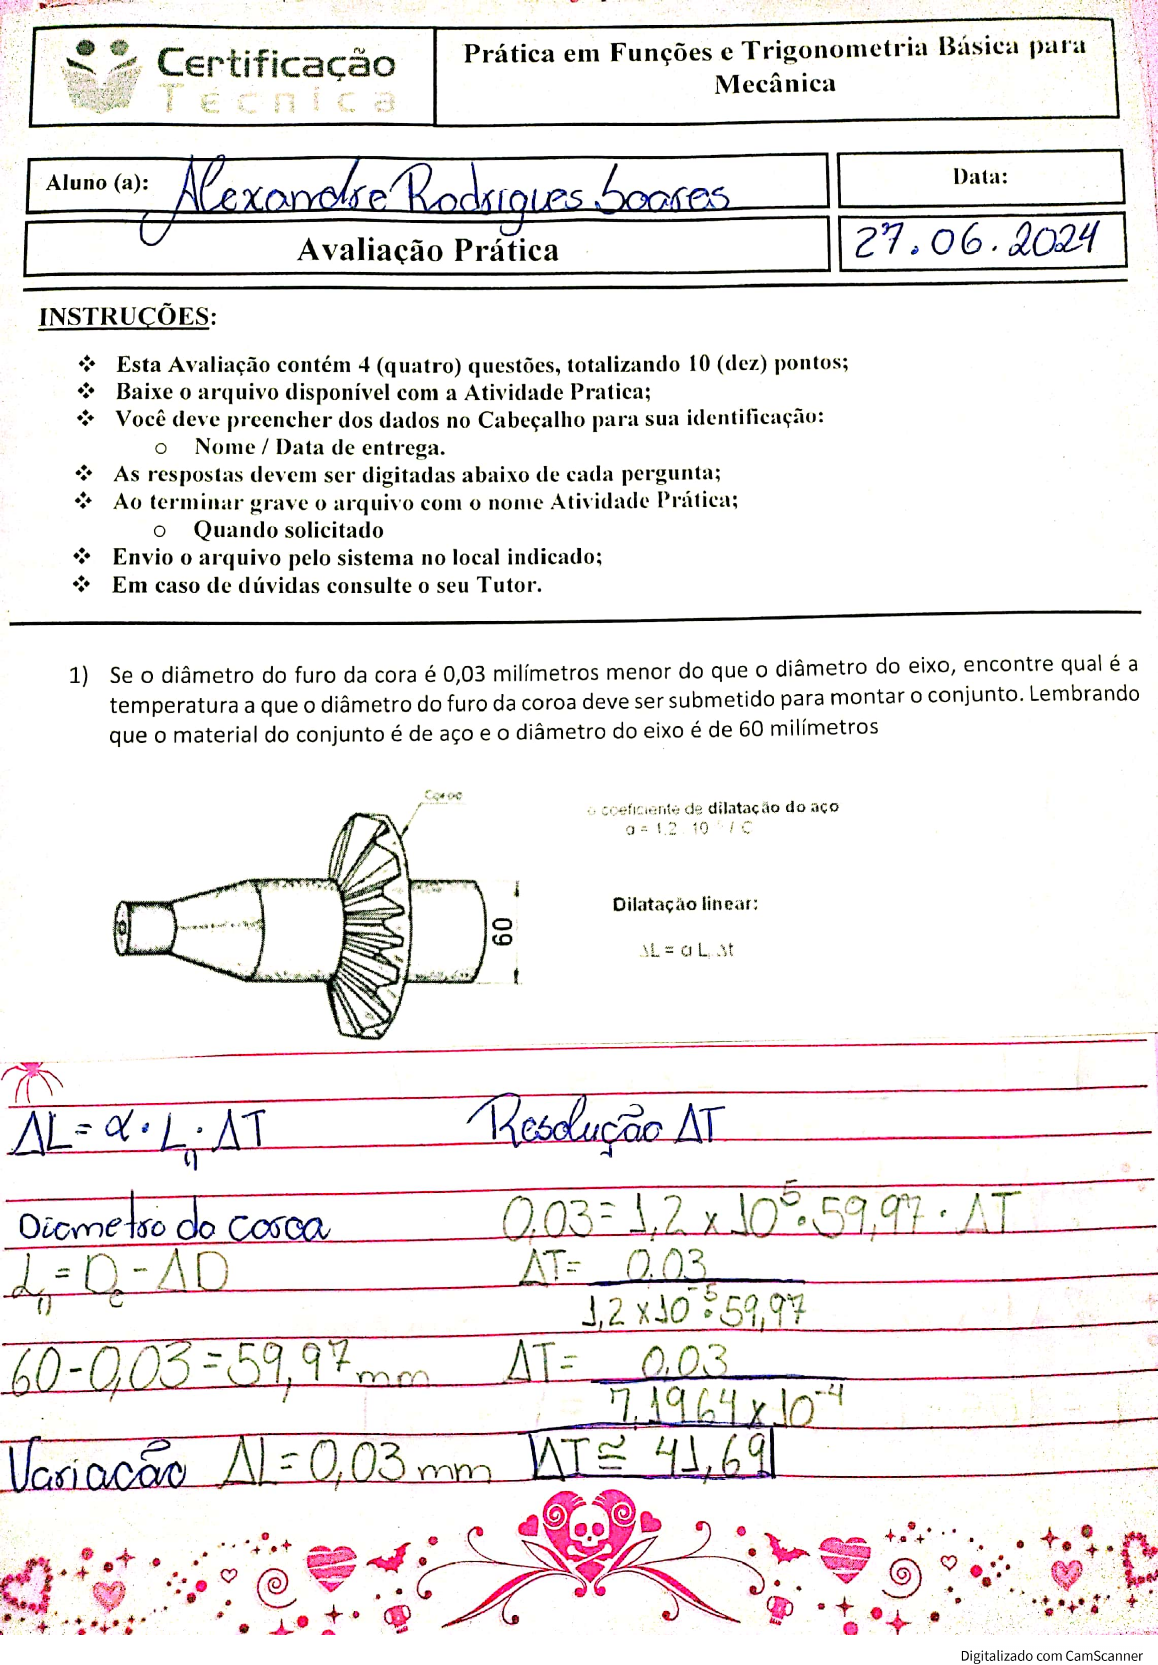 Certificação
Técnica
Prática em Funções e Trigonometria Básica para
Mecânica
Aluno (a): Alexandre Rodrigues Soares
Data:
Avaliação Prática
27.06.2024
INSTRUÇÕES:
❖ Esta Avaliação contém 4 (quatro) questões, totalizando 10 (dez) pontos;
❖ Baixe o arquivo disponível com a Atividade Pratica;
❖ Você deve preencher dos dados no Cabeçalho para sua identificação:
o Nome / Data de entrega.
❖ As respostas devem ser digitadas abaixo de cada pergunta;
❖ Ao terminar grave o arquivo com o nome Atividade Prática;
o Quando solicitado
❖ Envio o arquivo pelo sistema no local indicado;
❖ Em caso de dúvidas consulte o seu Tutor.
1) Se o diâmetro do furo da cora é 0,03 milímetros menor do que o diâmetro do eixo, encontre qual é a
temperatura a que o diâmetro do furo da coroa deve ser submetido para montar o conjunto. Lembrando
que o material do conjunto é de aço e o diâmetro do eixo é de 60 milímetros
Coroa
60
o coeficiente de dilatação do aço
Dilatação linear:
ΔL = α L, Δt
ΔL = α · L₀ · ΔT
Resolução ΔT
Diametro da coroa
0,03 = 1,2 x 10⁵ · 59,97 · ΔT
L₀ = Dc - ΔD
ΔT = 0,03
1,2 x 10⁻⁵ · 59,97
60 - 0,03 = 59,97 mm
ΔT = 0,03
7,1964 x 10⁻⁴
Variacão ΔL = 0,03 mm
ΔT ≅ 41,69
Digitalizado com CamScanner